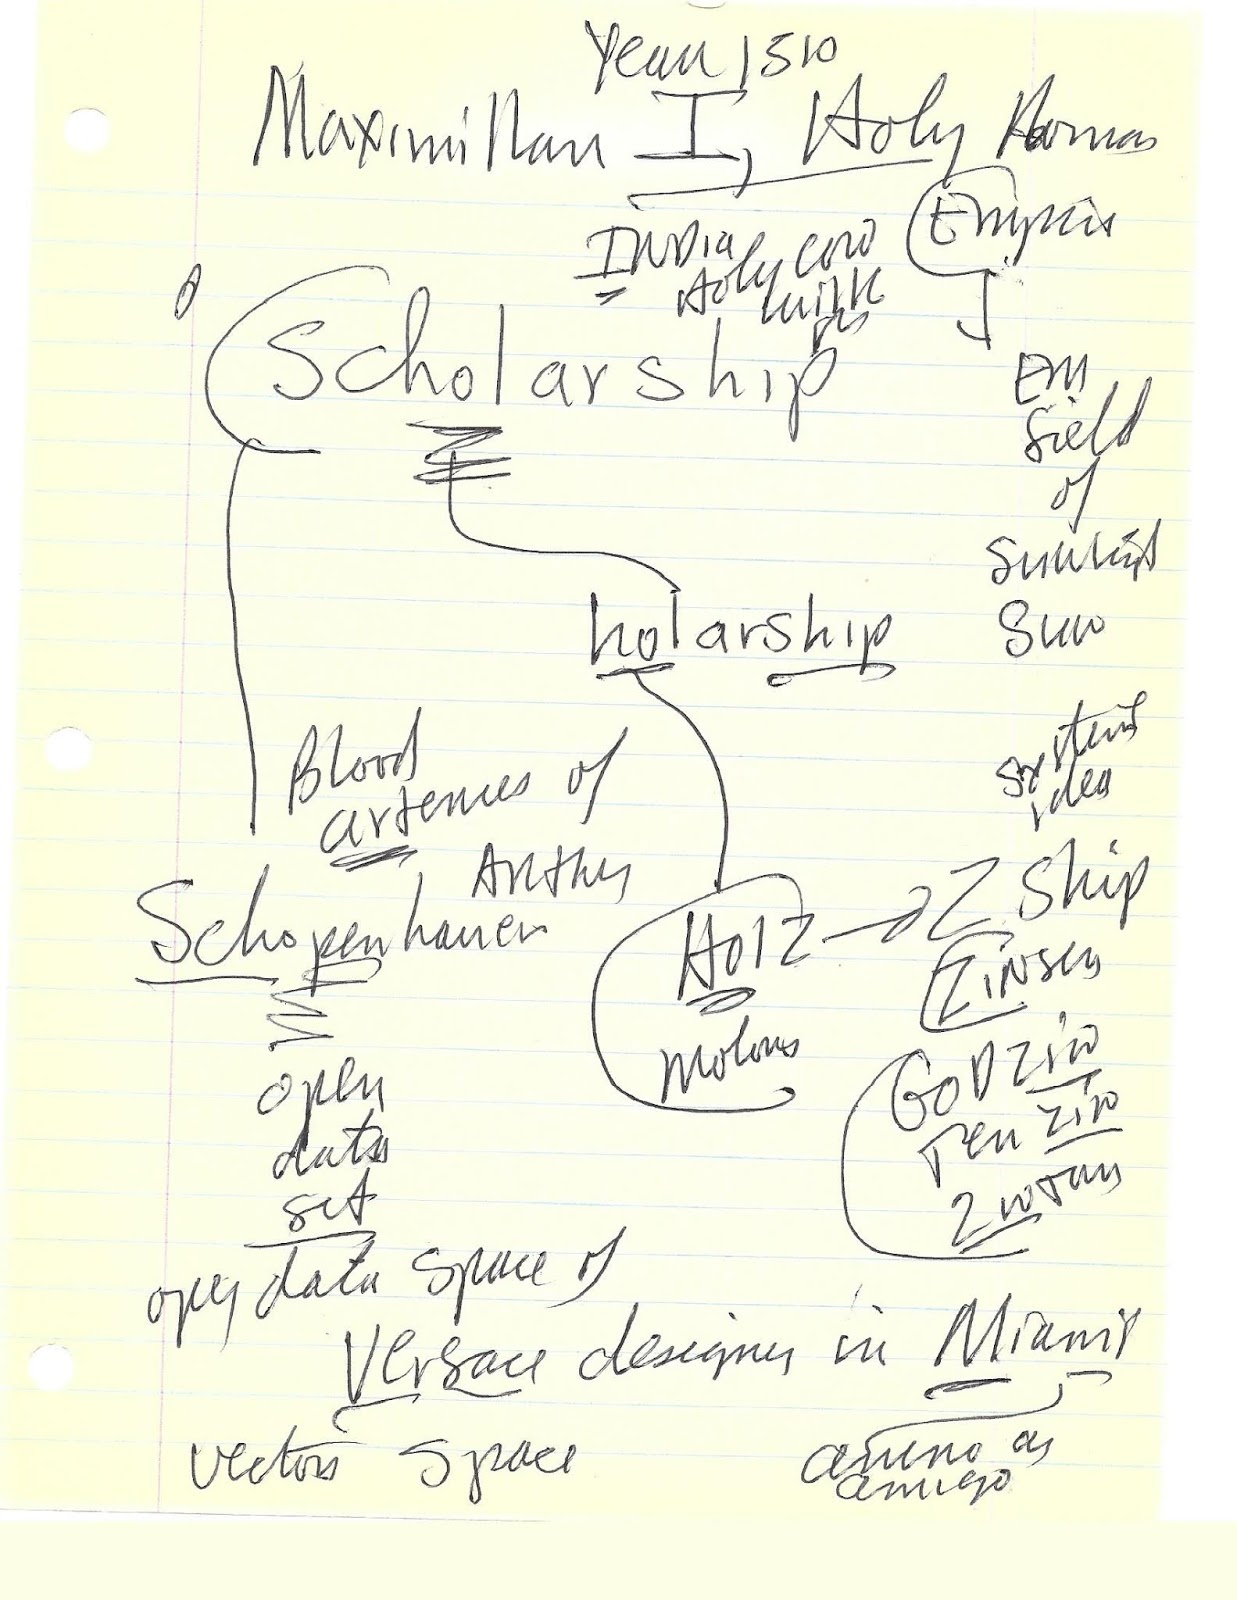 Year 1510
Maximillian I, Holy Roman
Empire
INDIA
Holy Cow
milk
Scholarship
EM
field
of
sunlight
Sun
holarship
systems
idea
Blood
arteries of
Arthur
Schopenhauer
Holz → Z Ship
Zinsen
motors
GODZin
Ten Zin
open
data
set
open data space of
Versace designer in Miami
vectors space
amino as
amigo